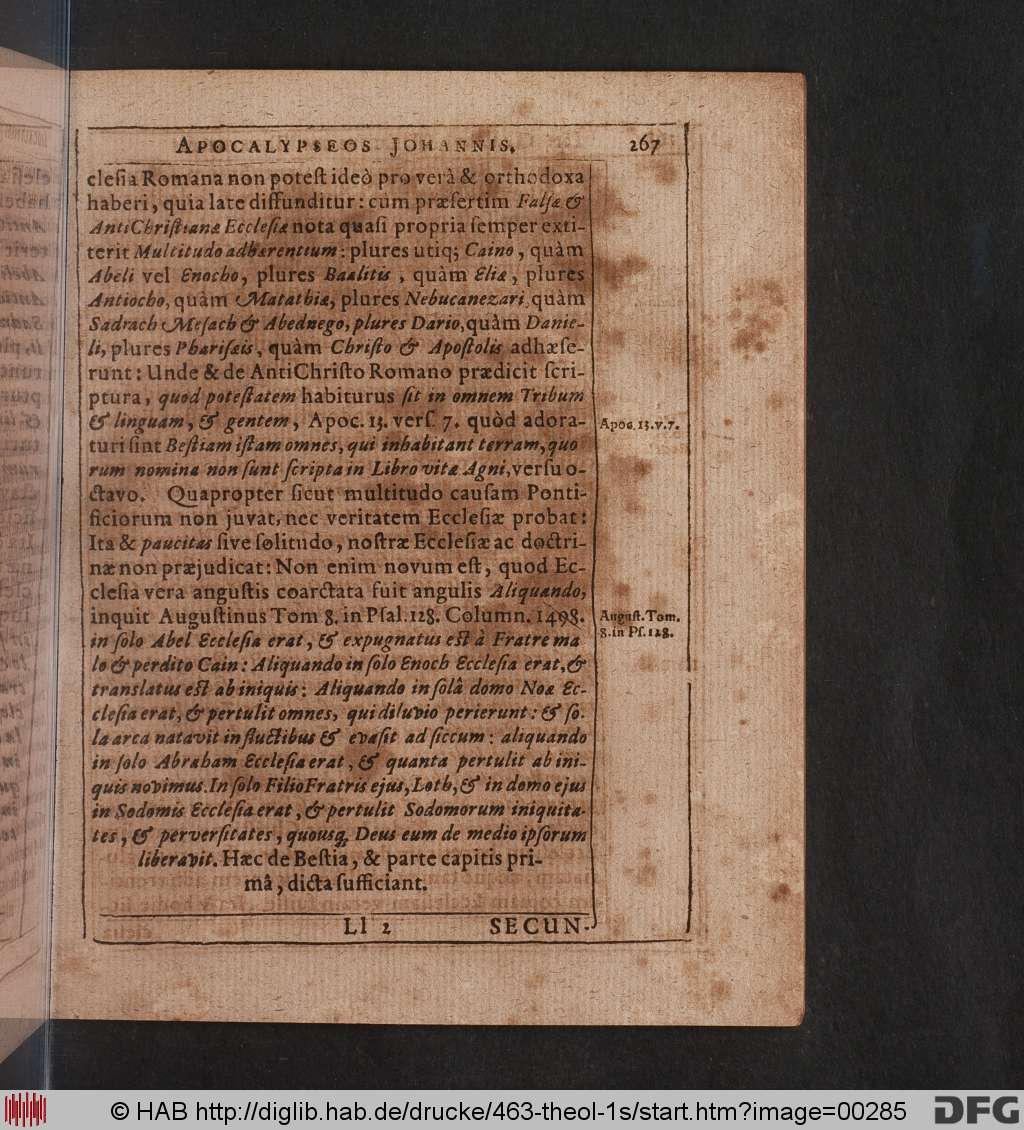 APOCALYPSEOS JOHANNIS. 267
clesia Romana non potest ideò pro verâ & orthodoxa
haberi, quia late diffunditur: cum præsertim Falsæ &
AntiChristianæ Ecclesiæ nota quasi propria semper exti-
terit Multitudo adhærentium: plures utiq; Caino, quàm
Abeli vel Enocho, plures Baalitis, quàm Eliæ, plures
Antiocho, quàm Matathiæ, plures Nebucanezari, quàm
Sadrach Mesach & Abednego, plures Dario, quàm Danie-
li, plures Pharisæis, quàm Christo & Apostolis adhæse-
runt: Unde & de AntiChristo Romano prædicit scri-
ptura, quod potestatem habiturus sit in omnem Tribum
& linguam, & gentem, Apoc. 13. vers. 7. quòd adora-
Apoc. 13. v. 7.
turi sint Bestiam istam omnes, qui inhabitant terram, quo
rum nomina non sunt scripta in Libro vitæ Agni, versu o-
ctavo. Quapropter sicut multitudo causam Ponti-
ficiorum non juvat, nec veritatem Ecclesiæ probat:
Ita & paucitas sive solitudo, nostræ Ecclesiæ ac doctri-
næ non præjudicat: Non enim novum est, quod Ec-
clesia vera angustis coarctata fuit angulis Aliquando,
inquit Augustinus Tom 8. in Psal. 128. Column. 1498.
August. Tom.
8. in Ps. 128.
in solo Abel Ecclesia erat, & expugnatus est à Fratre ma
lo & perdito Cain: Aliquando in solo Enoch Ecclesia erat, &
translatus est ab iniquis: Aliquando in solâ domo Noæ Ec-
clesia erat, & pertulit omnes, qui diluvio perierunt: & so-
la arca natavit in fluctibus & evasit ad siccum: aliquando
in solo Abraham Ecclesia erat, & quanta pertulit ab ini-
quis novimus. In solo Filio Fratris ejus, Loth, & in domo ejus
in Sodomis Ecclesia erat, & pertulit Sodomorum iniquita-
tes, & perversitates, quousq; Deus eum de medio ipsorum
liberavit. Hæc de Bestia, & parte capitis pri-
mâ, dicta sufficiant.
Ll 2 SECUN-
© HAB http://diglib.hab.de/drucke/463-theol-1s/start.htm?image=00285 DFG